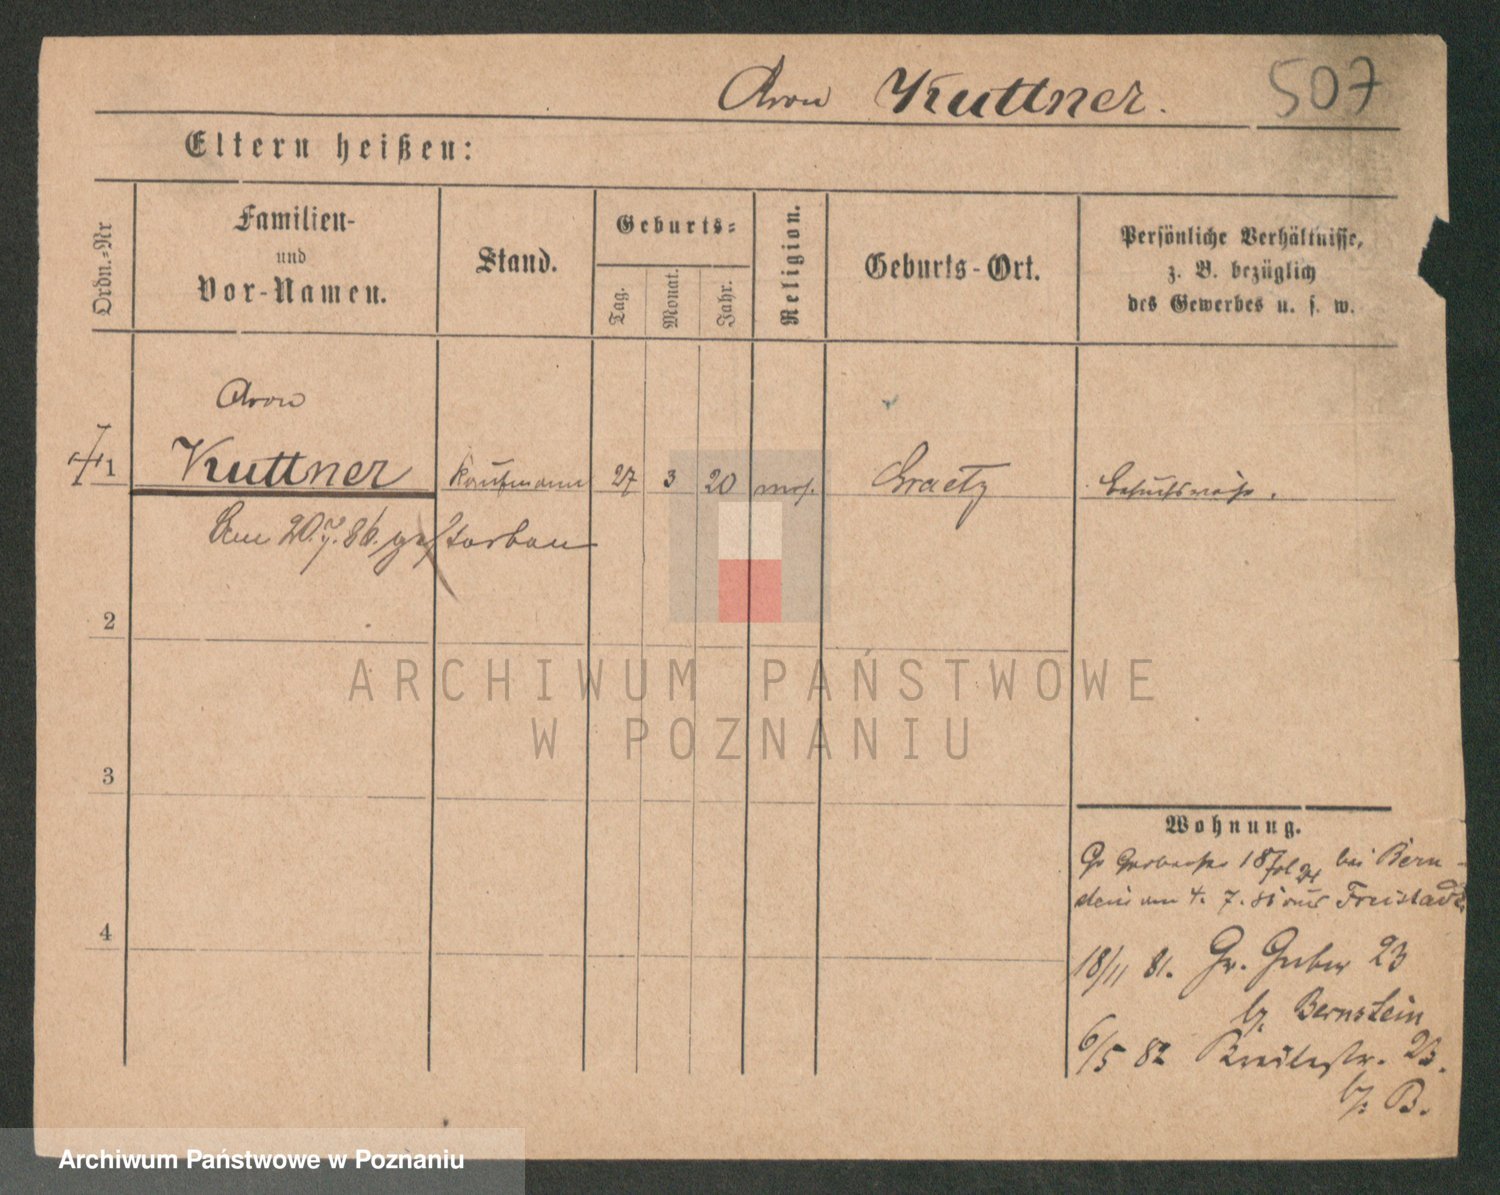 Aron Kuttner. 507
Eltern heißen:
Ordn.=Nr
Familien-
und
Vor-Namen.
Stand.
Geburts=
Tag.
Monat.
Jahr.
Religion.
Geburts-Ort.
Persönliche Verhältnisse,
z. B. bezüglich
des Gewerbes u. s. w.
Aron
1 Kuttner Kaufmann 27 3 20 mos. Graetz besuchsweise.
Am 20.7.86. gestorben
2
3
4
Wohnung.
Gr Gerberstr 18 bei Bern-
stein am 4. 7. 81 aus Freistadt
18/11 81. Gr. Gerber 23
bz. Bernstein
6/5 82 Breitestr. 23.
bz. B.
ARCHIWUM PAŃSTWOWE
W POZNANIU
Archiwum Państwowe w Poznaniu